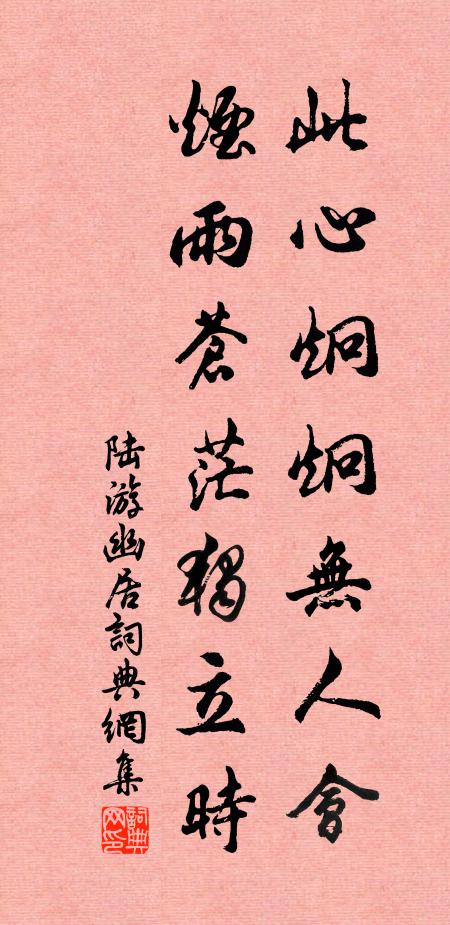 此心炯炯無人會
煙雨蒼茫獨立時
陆游幽居詞典網集
詞典网印